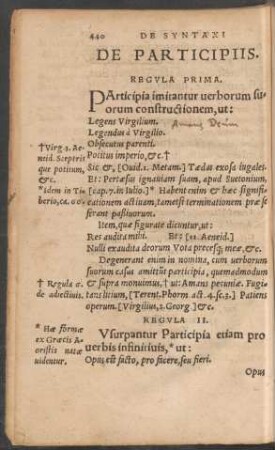 440 DE SYNTAXI
DE PARTICIPIIS.
REGVLA PRIMA.
PArticipia imitantur uerborum su-
orum constructionem, ut:
Legens Virgilium.
Legendus à Virgilio.
Obsecutus parenti.
Potitus imperio, &c. †
Sic &, [Ouid. 1. Metam.] Tædas exosa iugales.
Et: Pertæsus ignauiam suam, apud Suetonium,
[cap. 7. in Iulio.] * Habent enim & hæc signifi-
cationem actiuam, tametsi terminationem præ se
ferant passiuorum.
Item, quæ figuratè dicuntur, ut:
Res audita mihi. Et: [11. Aeneid.]
Nulli exaudita deorum Vota precesq; meæ, &c.
Degenerant enim in nomina, cum uerborum
suorum casus amittũt participia, quemadmodum
& supra monuimus, † ut: Amans pecuniæ. Fugi-
tans litium, [Terent. Phorm act. 4. sc. 3.] Patiens
operum. [Virgilius, 2. Georg.] &c.
REGVLA II.
Vsurpantur Participia etiam pro
uerbis infinitiuis, * ut:
Opus est facto, pro facere, seu fieri.
Opus
† Virg. 1. Ae-
neid. Sceptris
que potitum,
&c.
* Idem in Ti-
berio, ca.
† Regula 2.
de adiectiuis.
* Hæ formæ
ex Græcis A-
oristis natæ
uidentur.